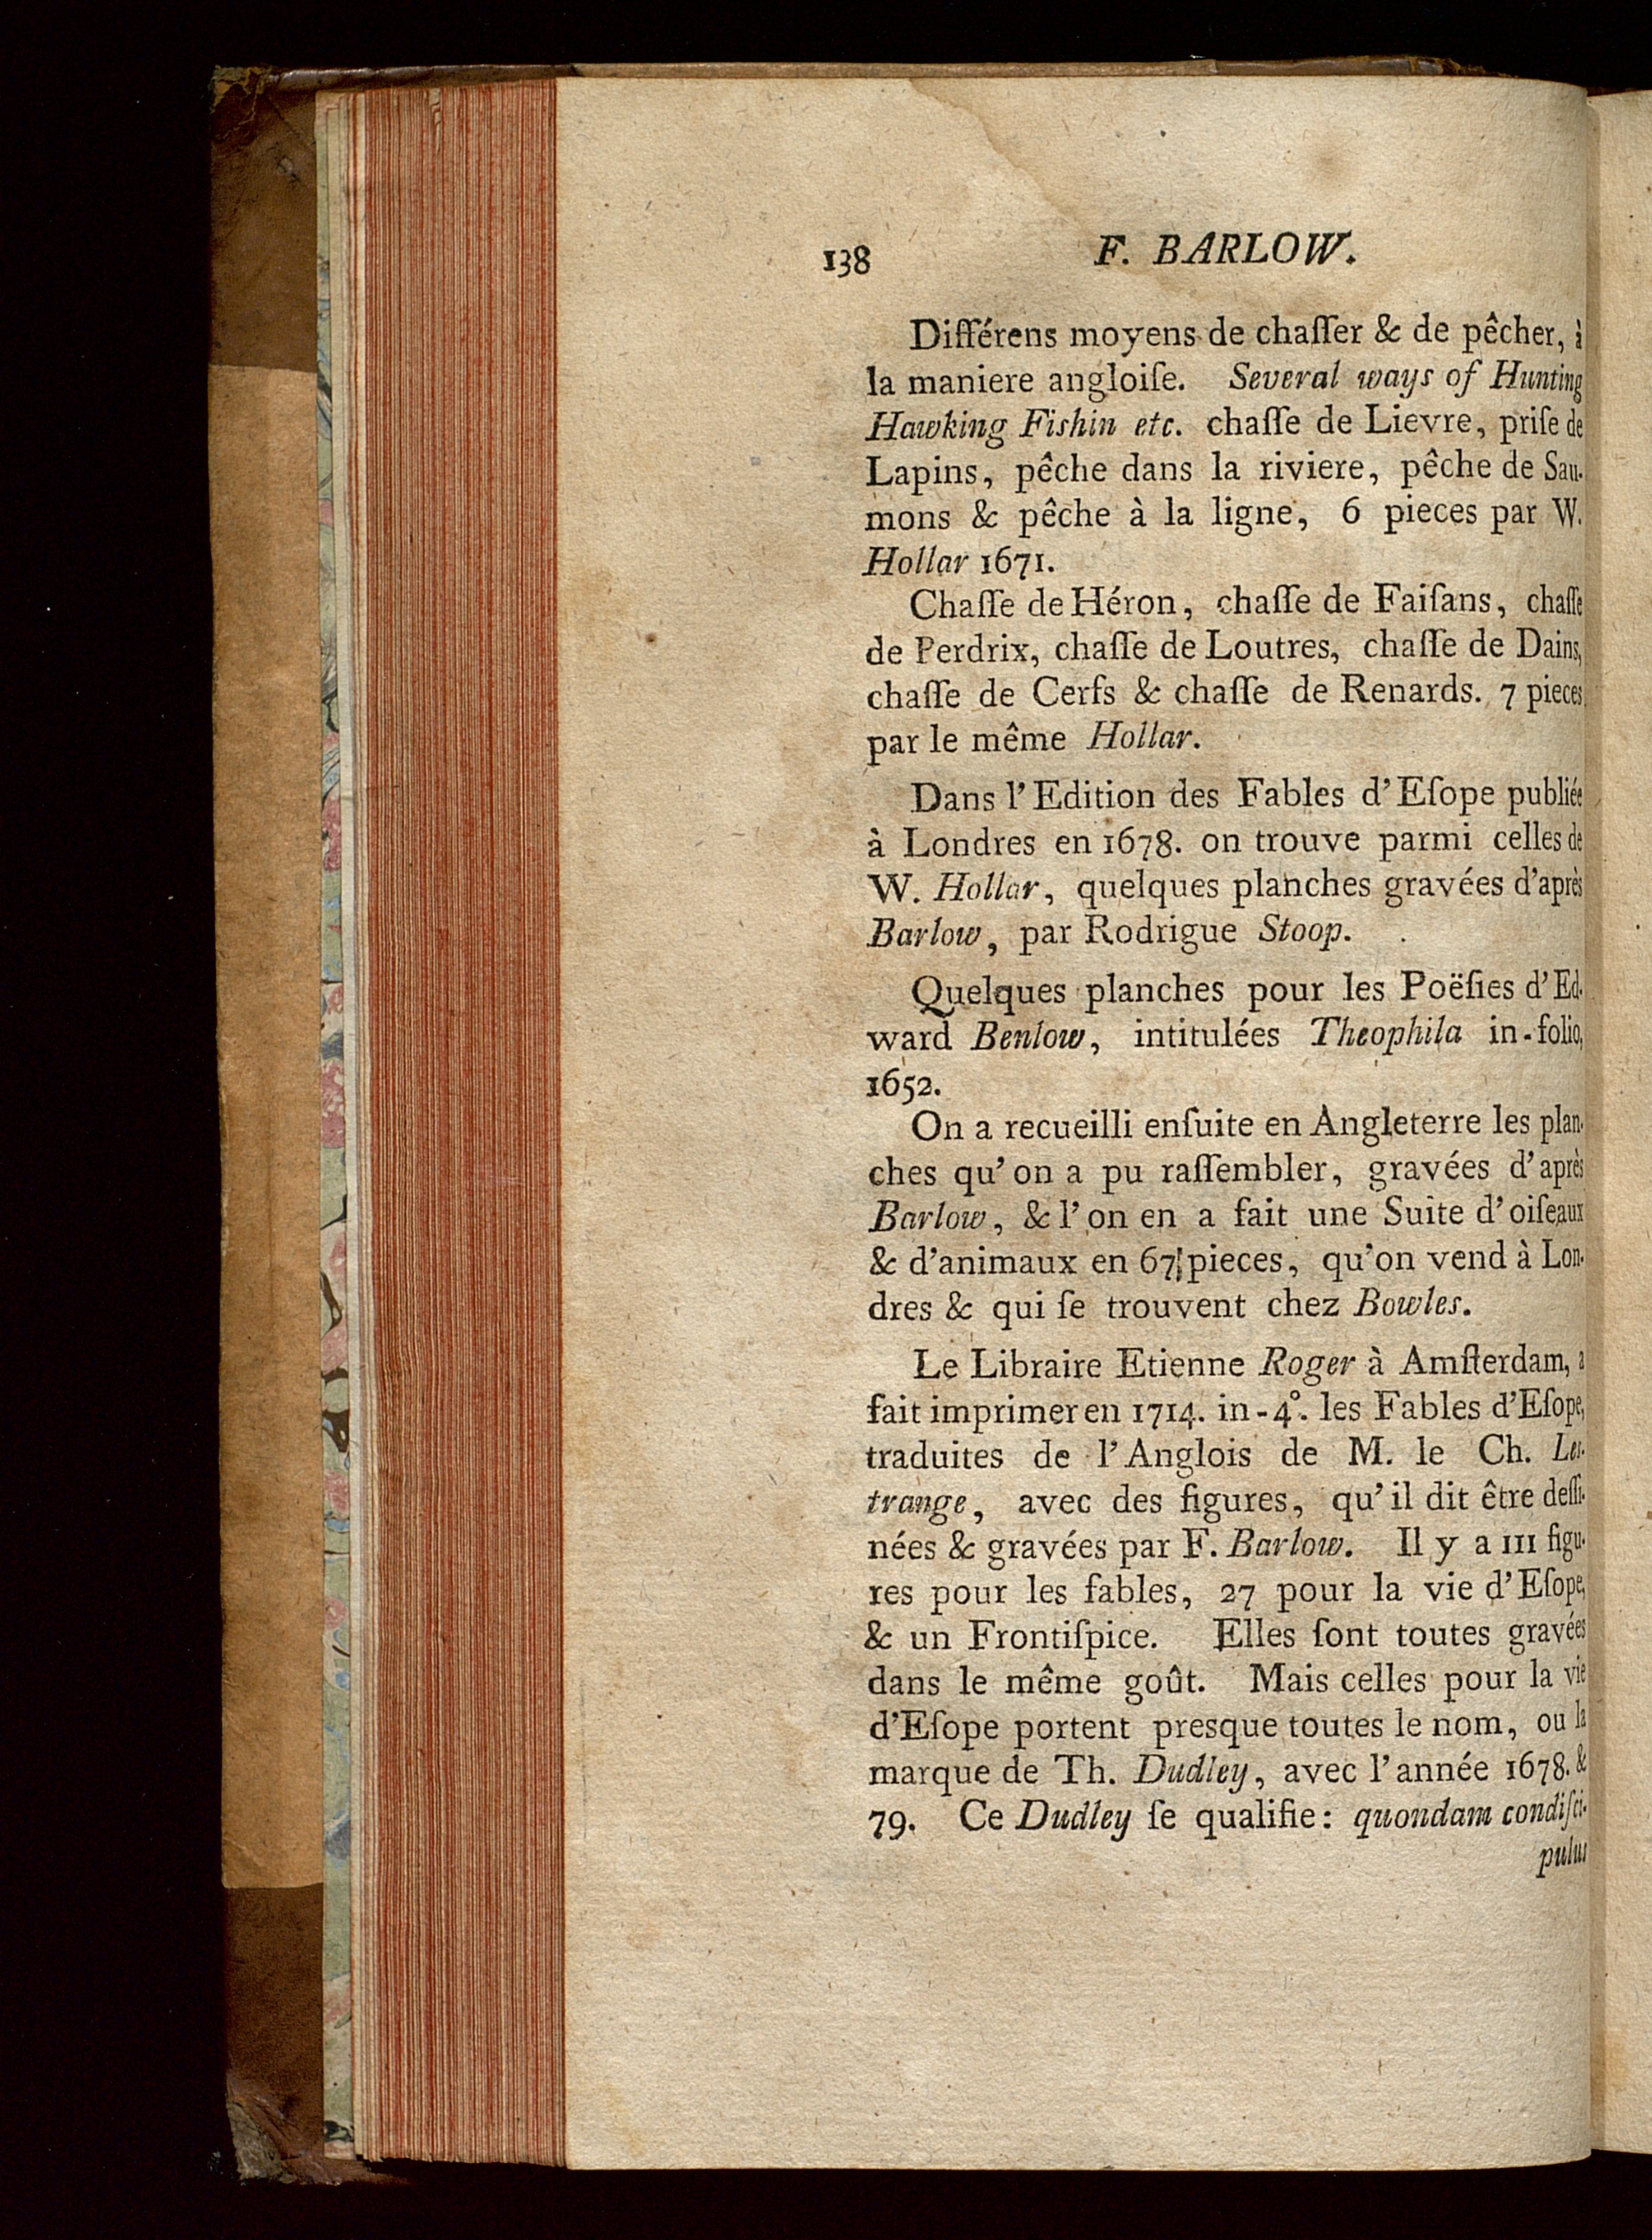 138 F. BARLOW.
Différens moyens de chaſſer & de pêcher, à
la maniere angloiſe. Several ways of Hunting
Hawking Fishin etc. chaſſe de Lievre, priſe de
Lapins, pêche dans la riviere, pêche de Sau-
mons & pêche à la ligne, 6 pieces par W.
Hollar 1671.
Chaſſe de Héron, chaſſe de Faiſans, chaſſe
de Perdrix, chaſſe de Loutres, chaſſe de Dains,
chaſſe de Cerfs & chaſſe de Renards. 7 pieces
par le même Hollar.
Dans l'Edition des Fables d'Eſope publiée
à Londres en 1678. on trouve parmi celles de
W. Hollar, quelques planches gravées d'après
Barlow, par Rodrigue Stoop.
Quelques planches pour les Poëſies d'Ed-
ward Benlow, intitulées Theophila in-folio,
1652.
On a recueilli enſuite en Angleterre les plan-
ches qu'on a pu raſſembler, gravées d'après
Barlow, & l'on en a fait une Suite d'oiſeaux
& d'animaux en 67 pieces, qu'on vend à Lon-
dres & qui ſe trouvent chez Bowles.
Le Libraire Etienne Roger à Amſterdam, a
fait imprimer en 1714. in-4°. les Fables d'Eſope,
traduites de l'Anglois de M. le Ch. Les-
trange, avec des figures, qu'il dit être deſſi-
nées & gravées par F. Barlow. Il y a 111 figu-
res pour les fables, 27 pour la vie d'Eſope,
& un Frontiſpice. Elles ſont toutes gravées
dans le même goût. Mais celles pour la vie
d'Eſope portent presque toutes le nom, ou la
marque de Th. Dudley, avec l'année 1678. &
79. Ce Dudley ſe qualifie: quondam condiſci-
pulus